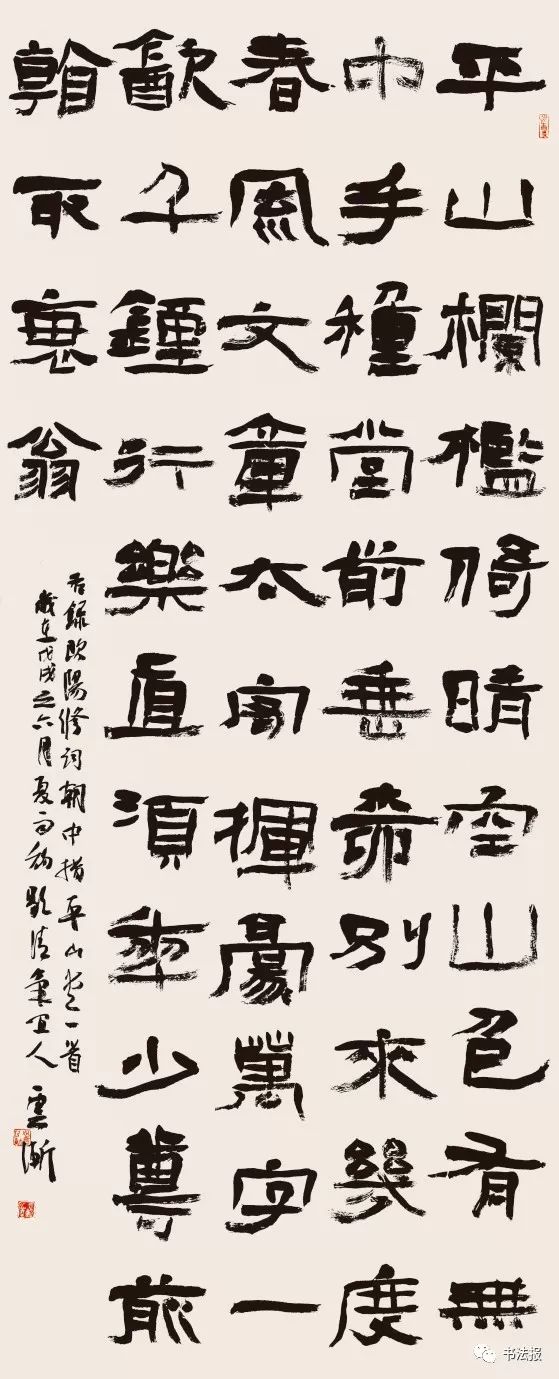 平山欄檻倚晴空山色有無
中手種堂前垂柳別來幾度
春風文章太守揮毫萬字一
飲千鍾行樂直須年少尊前
看取衰翁
右錄歐陽修詞朝中措平山堂一首
歲在戊戌之六月夏雨初歇清氣宜人
雲
书法报